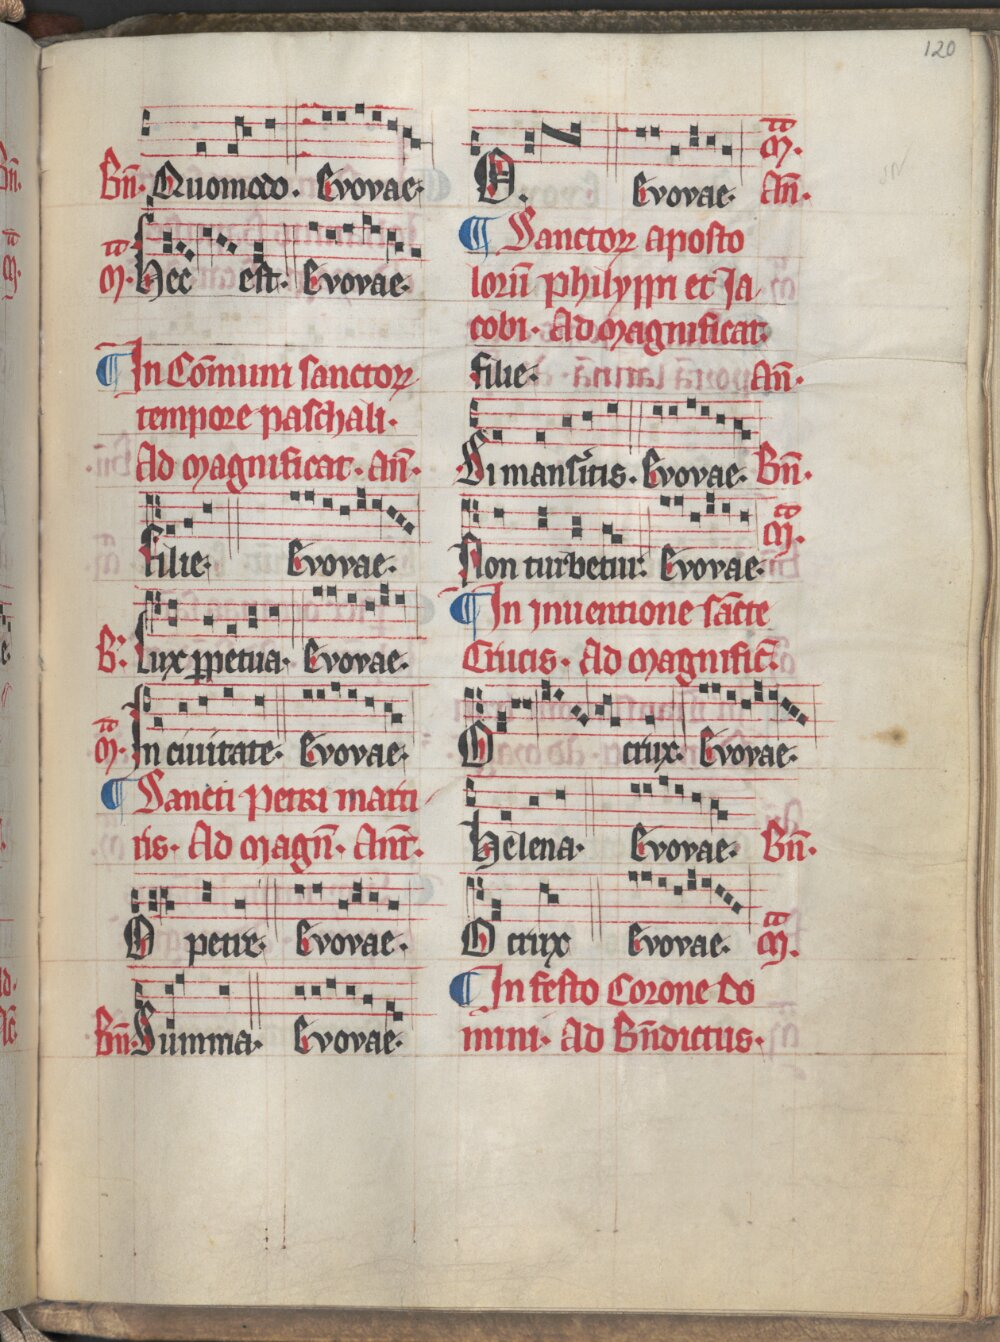 120
Bn̄. Quomodo. Evovae.
ad M. Hec est. Evovae.
¶ In Cōmuni sanctoꝝ
tempore paschali.
Ad magnificat. an̄.
Filie. Evovae.
B. Lux ꝑpetua. Evovae.
ad M. In civitate. Evovae.
¶ Sancti Petri marti
ris. Ad magn̄. Ant̄.
O petre. Evovae.
Bn̄. Summa. Evovae.
O. Evovae. ad M. An̄.
¶ Sanctoꝝ aposto
lorū philyppi et Ja
cobi. Ad magnificat.
filie. An̄.
Si manseritis. Evovae. Bn̄.
Non turbetur. Evovae. ad M.
¶ In inventione sācte
Crucis. Ad magnific̄.
O crux. Evovae.
Helena. Evovae. Bn̄.
O crux Evovae. ad M.
¶ In festo Corone do
mini. Ad Bn̄dictus.